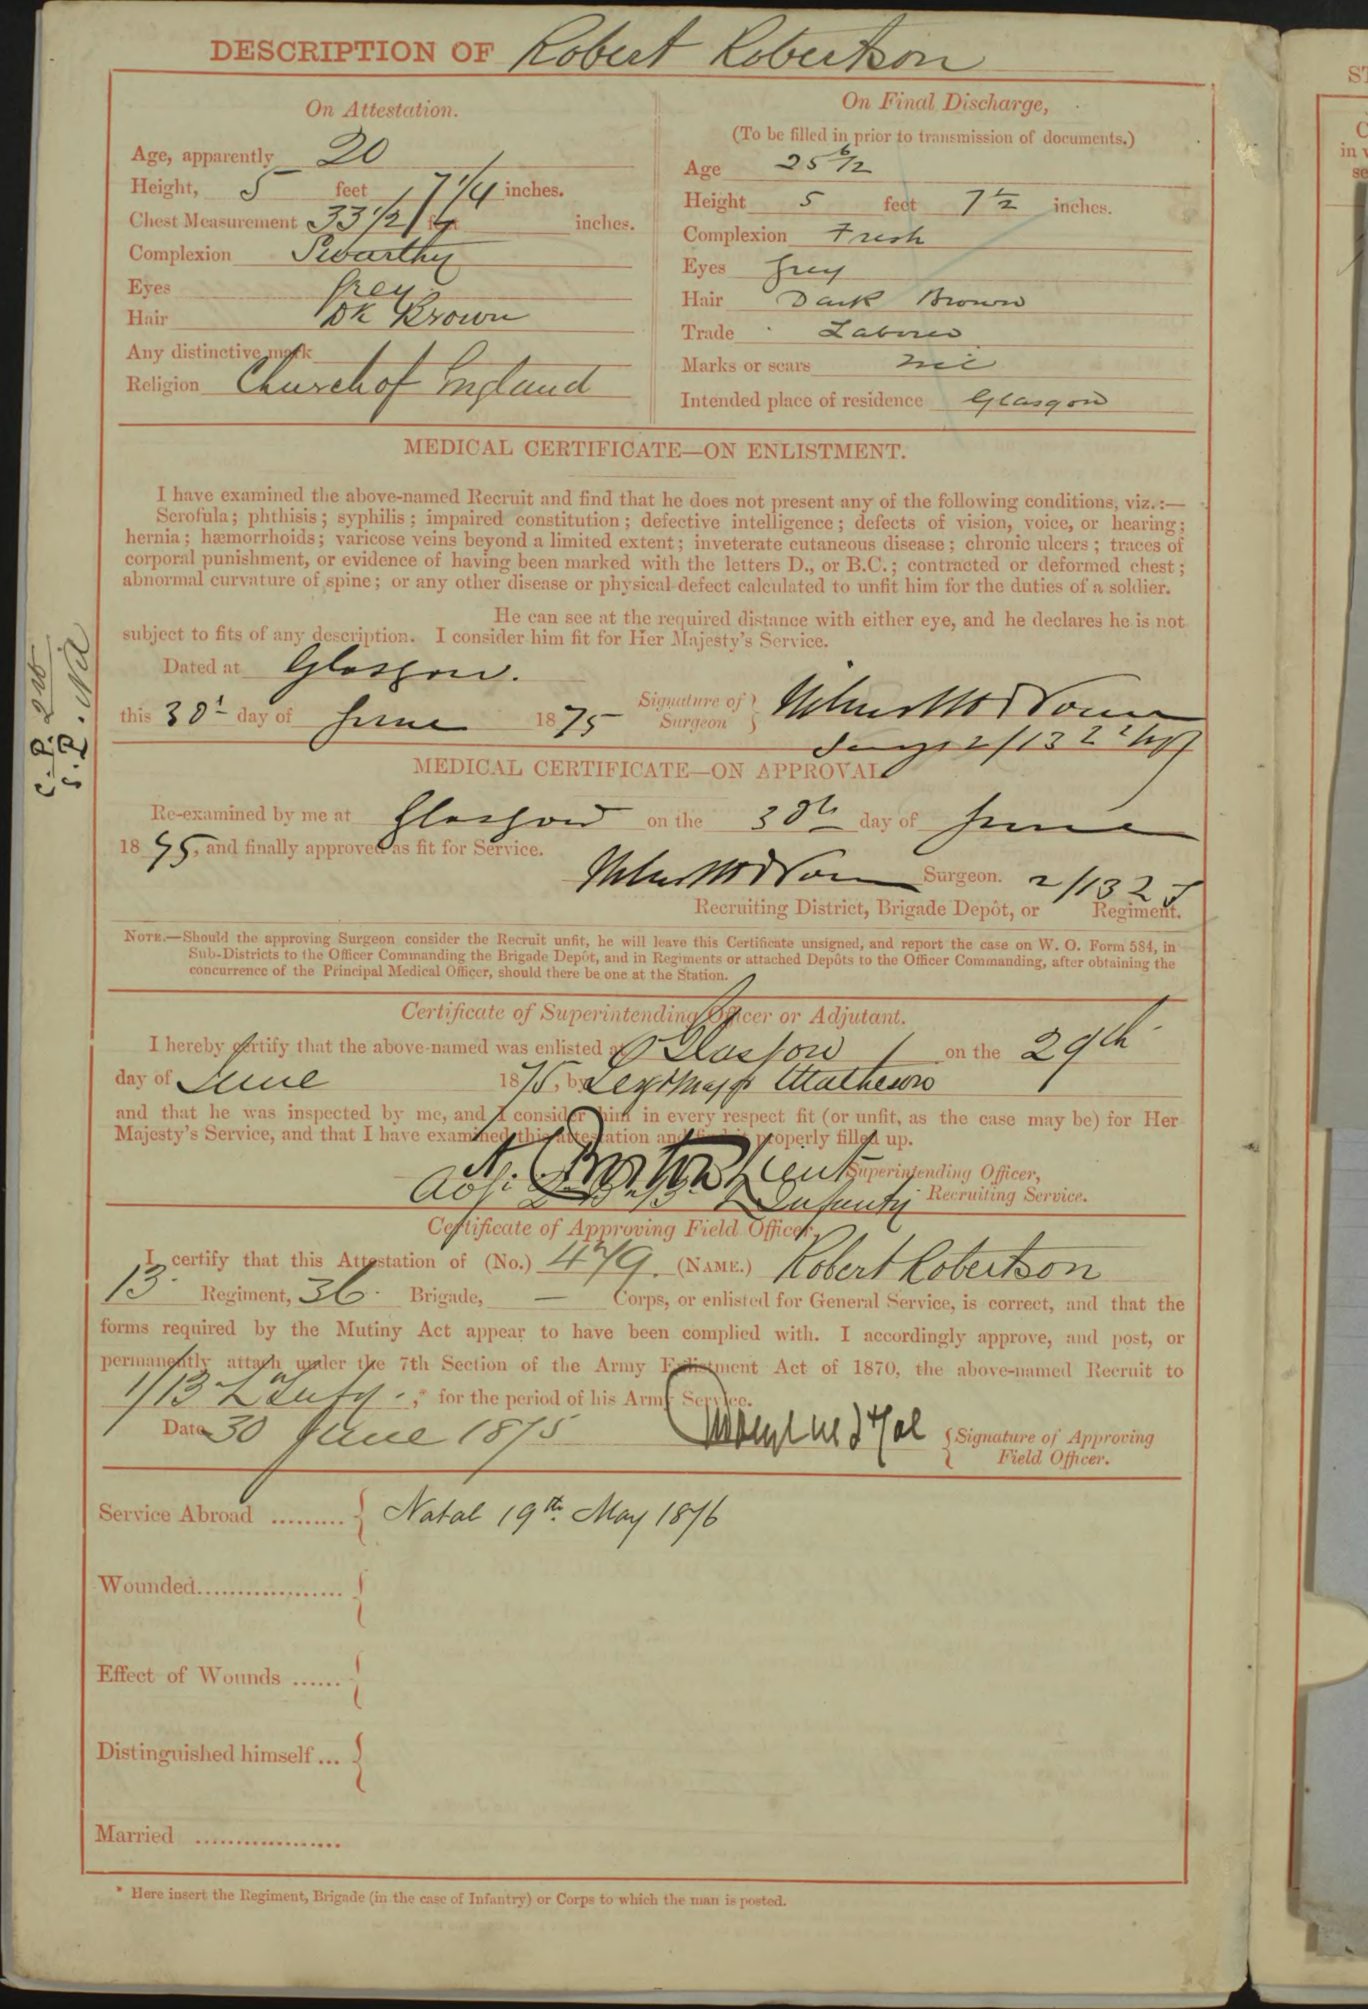 DESCRIPTION OF Robert Robertson
On Attestation.
Age, apparently 20
Height, 5 feet 7 1/4 inches.
Chest Measurement 33 1/2 feet inches.
Complexion Swarthy
Eyes Grey
Hair Dk Brown
Any distinctive mark
Religion Church of England
On Final Discharge,
(To be filled in prior to transmission of documents.)
Age 25 6/12
Height 5 feet 7 1/2 inches.
Complexion Fresh
Eyes Grey
Hair Dark Brown
Trade Laborer
Marks or scars Nil
Intended place of residence Glasgow
MEDICAL CERTIFICATE—ON ENLISTMENT.
I have examined the above-named Recruit and find that he does not present any of the following conditions, viz.:—
Scrofula; phthisis; syphilis; impaired constitution; defective intelligence; defects of vision, voice, or hearing;
hernia; hæmorrhoids; varicose veins beyond a limited extent; inveterate cutaneous disease; chronic ulcers; traces of
corporal punishment, or evidence of having been marked with the letters D., or B.C.; contracted or deformed chest;
abnormal curvature of spine; or any other disease or physical defect calculated to unfit him for the duties of a soldier.
He can see at the required distance with either eye, and he declares he is not
subject to fits of any description. I consider him fit for Her Majesty's Service.
Dated at Glasgow.
this 30th day of June 1875 Signature of Surgeon
2/13
MEDICAL CERTIFICATE—ON APPROVAL
Re-examined by me at Glasgow on the 30th day of June
1875, and finally approved as fit for Service.
Surgeon. 2/13
Recruiting District, Brigade Depôt, or Regiment.
NOTE.—Should the approving Surgeon consider the Recruit unfit, he will leave this Certificate unsigned, and report the case on W. O. Form 584, in
Sub-Districts to the Officer Commanding the Brigade Depôt, and in Regiments or attached Depôts to the Officer Commanding, after obtaining the
concurrence of the Principal Medical Officer, should there be one at the Station.
Certificate of Superintending Officer or Adjutant.
I hereby certify that the above-named was enlisted at Glasgow on the 29th
day of June 1875, by Sergt Major Matheson
and that he was inspected by me, and I consider him in every respect fit (or unfit, as the case may be) for Her
Majesty's Service, and that I have examined this attestation and find it properly filled up.
Lieut Superintending Officer,
Infantry Recruiting Service.
Certificate of Approving Field Officer.
I certify that this Attestation of (No.) 479. (NAME.) Robert Robertson
13 Regiment, 36 Brigade, — Corps, or enlisted for General Service, is correct, and that the
forms required by the Mutiny Act appear to have been complied with. I accordingly approve, and post, or
permanently attach under the 7th Section of the Army Enlistment Act of 1870, the above-named Recruit to
1/13 L Infy,* for the period of his Army Service.
Date 30 June 1875 Signature of Approving
Field Officer.
Service Abroad ......... Natal 19th May 1876
Wounded..................
Effect of Wounds ......
Distinguished himself ...
Married ..................
* Here insert the Regiment, Brigade (in the case of Infantry) or Corps to which the man is posted.